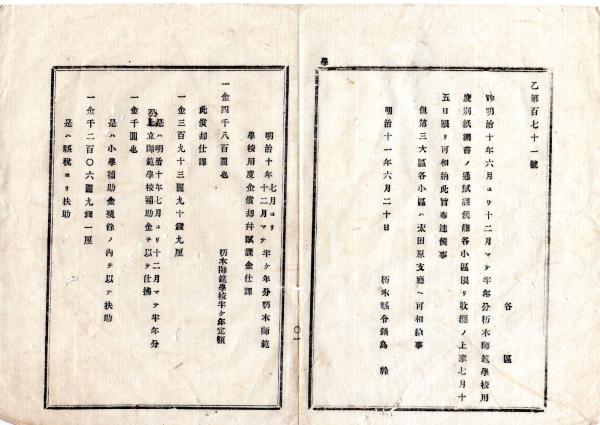 學
乙第百七十一號
各區
昨明治十年六月ヨリ十二月マテ半年分栃木師範學校用
度別紙調書ノ通賦課候條各小區限リ收纒ノ上來七月十
五日限リ可相納此旨布達候事
但第三大區各小區ハ太田原支廳ヘ可相納事
明治十一年六月二十日
栃木縣令鍋島幹
明治十年七月ヨリ十二月マテ半ケ年分栃木師範
學校用度金償却幷賦課金仕譯
一金四千八百圓也
栃木師範學校半ケ年定額
此償却仕譯
一金三百九十三圓九十錢九厘
是ハ明治十年七月ヨリ十二月マテ半年分
公立師範學校補助金ヲ以テ仕拂
一金千圓也
是ハ小學補助金殘餘ノ內ヲ以テ扶助
一金千二百〇六圓九錢一厘
是ハ縣稅ヨリ扶助